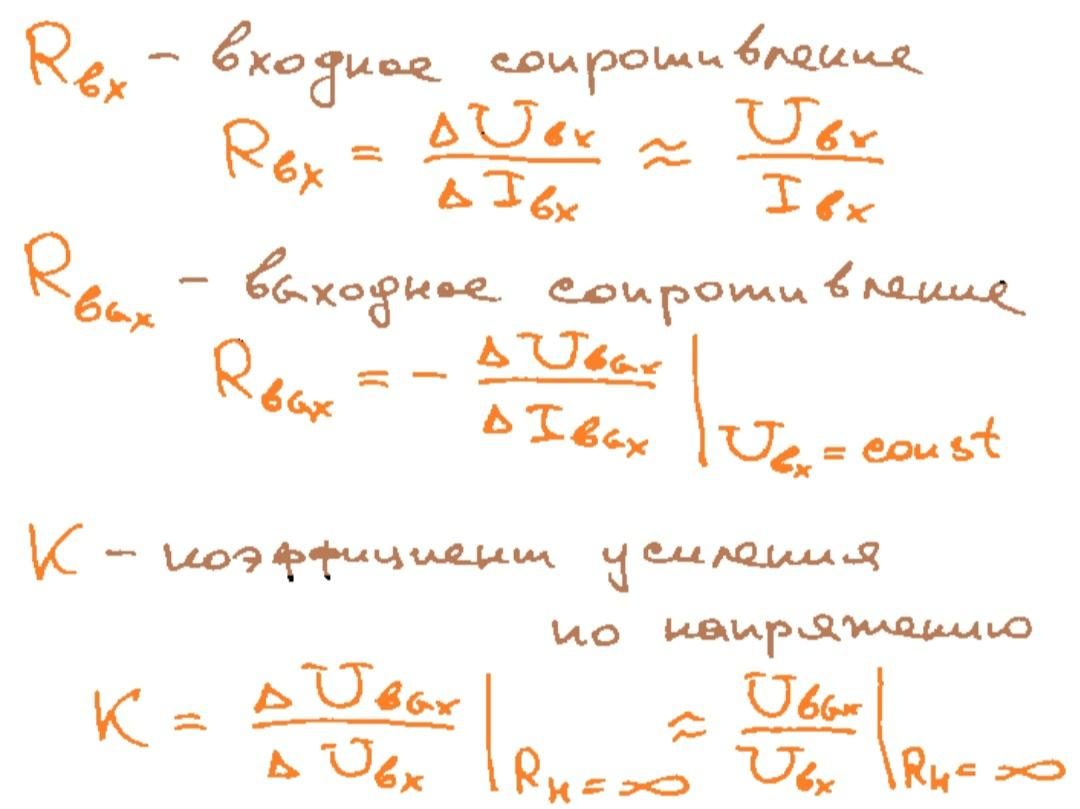 Rвх - входное сопротивление
Rвх = ΔUвх / ΔIвх ≈ Uвх / Iвх
Rвых - выходное сопротивление
Rвых = - ΔUвых / ΔIвых | Uвх = const
K - коэффициент усиления
по напряжению
K = ΔUвых / ΔUвх | Rн = ∞ ≈ Uвых / Uвх | Rн = ∞